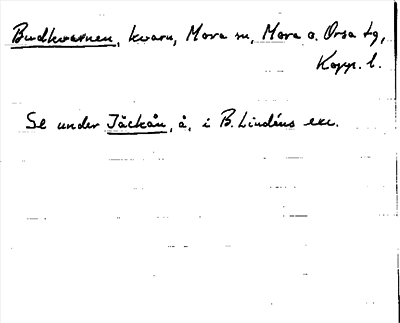 Budkvarnen, kvarn, Mora sn, Mora o. Orsa tg,
Kopp. l.
Se under Jäckån, å, i B. Lindéns exc.